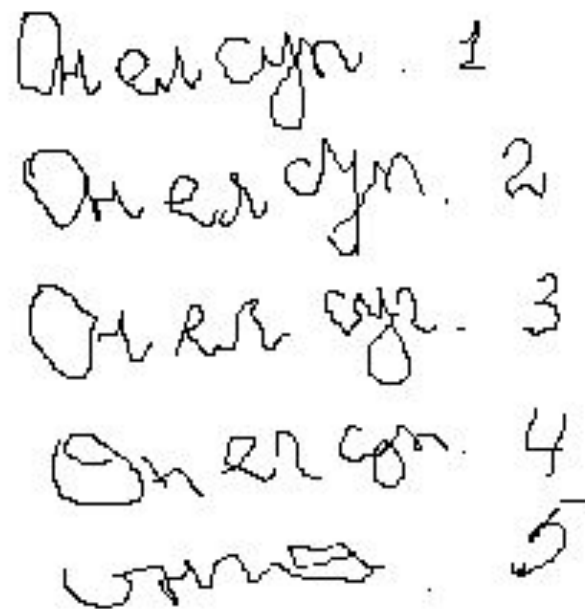 Он ел суп. 1
Он ел суп. 2
Он ел суп. 3
Он ел суп. 4
. 5